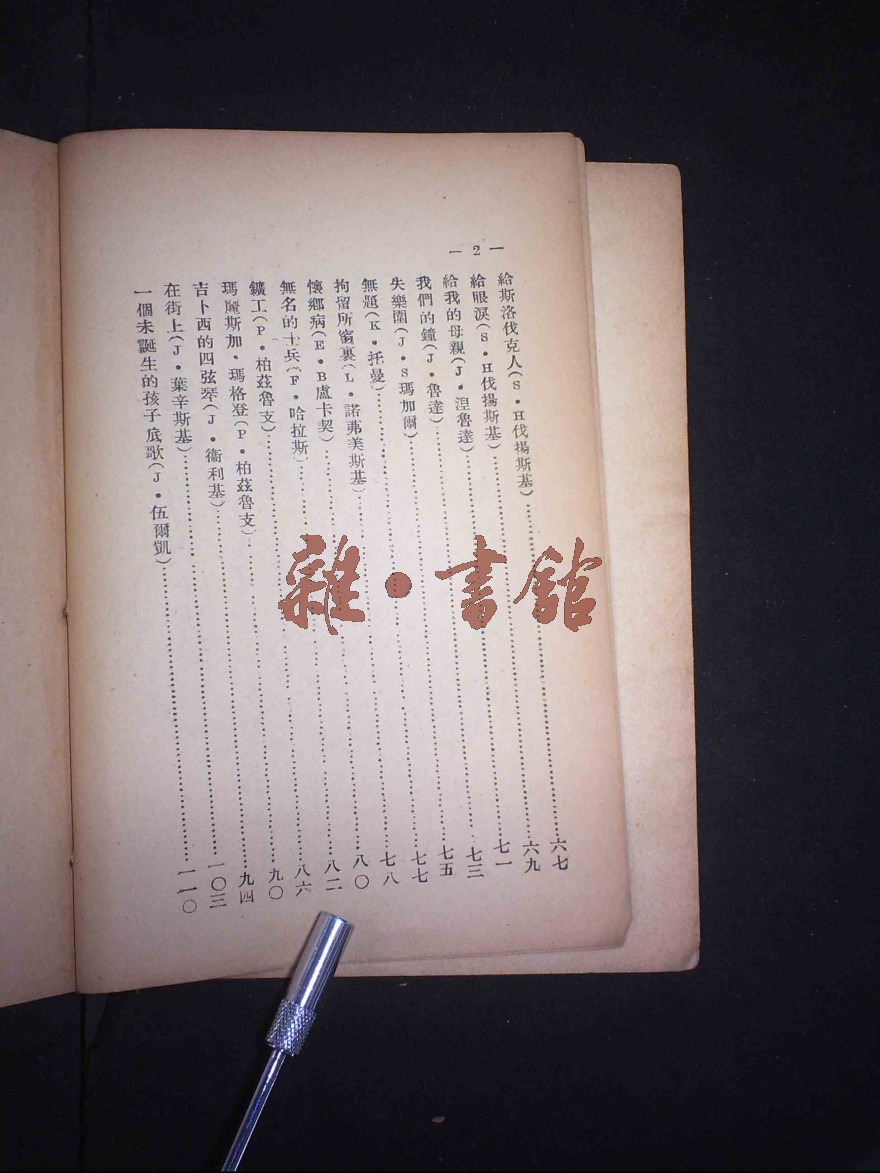 — 2 —
給斯洛伐克人(S•H伐揚斯基)……六七
給眼淚(S•H伐揚斯基)……六九
給我的母親(J•涅魯達)……七一
我們的鐘(J•魯達)……七三
失樂園(J•S瑪加爾)……七五
無題(K•托曼)……七七
拘留所窗裏(L•諾弗美斯基)……七八
懷鄉病(E•B盧卡契)……八〇
無名的士兵(F•哈拉斯)……八二
鑛工(P•柏茲魯支)……八六
瑪麗斯加、瑪格登(P•柏茲魯支)……九〇
吉卜西的四弦琴(J•衞利基)……九四
在街上(J•葉辛斯基)……一〇三
一個未誕生的孩子底歌(J•伍爾凱)……一一〇
雜•書館